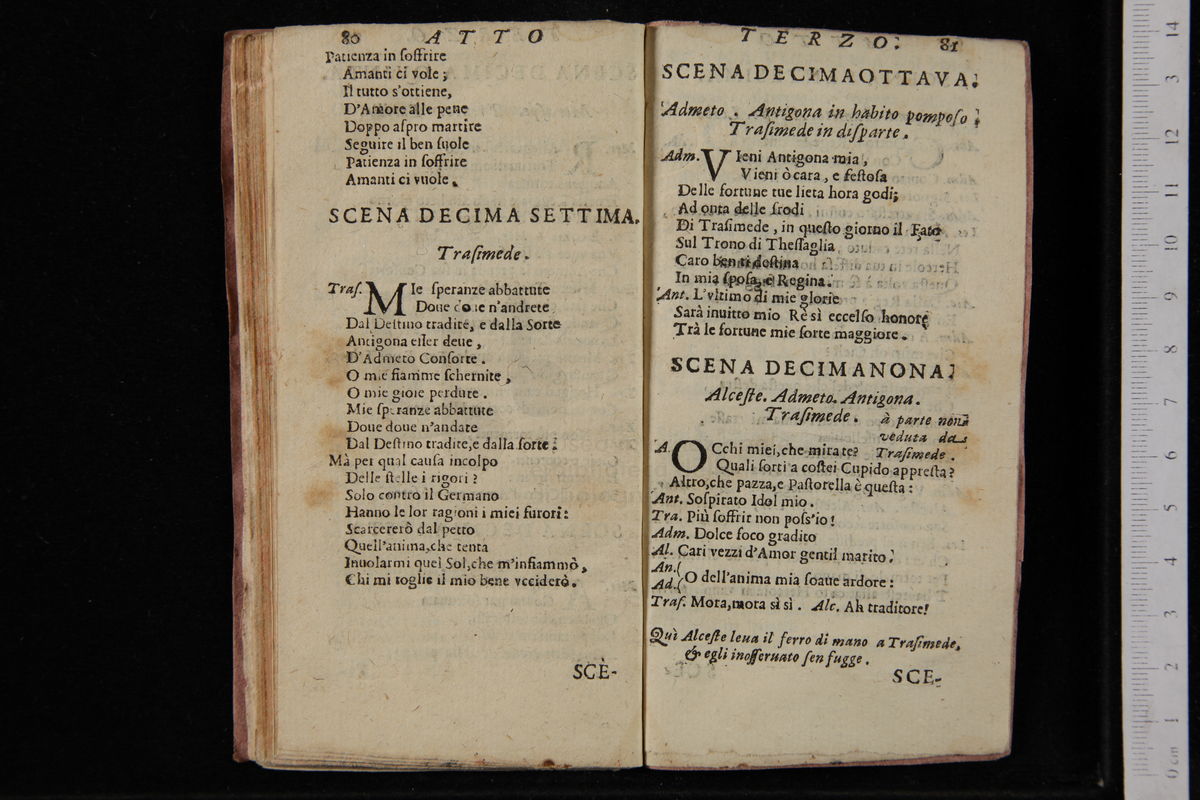 80 ATTO
Patienza in soffrire
Amanti ci vole;
Il tutto s'ottiene,
D'Amore alle pene
Doppo aspro martire
Seguire il ben suole
Patienza in soffrire
Amanti ci vuole.
SCENA DECIMA SETTIMA.
Trasimede.
Tras. MIe speranze abbattute
Doue doue n'andrete
Dal Destino tradite, e dalla Sorte
Antigona esser deue,
D'Admeto Consorte.
O mie fiamme schernite,
O mie gioie perdute.
Mie speranze abbattute
Doue doue n'andate
Dal Destino tradite, e dalla sorte.
Mà per qual causa incolpo
Delle stelle i rigori?
Solo contro il Germano
Hanno le lor ragioni i miei furori:
Scarcererò dal petto
Quell'anima, che tenta
Inuolarmi quel Sol, che m'infiammò,
Chi mi toglie il mio bene vcciderò.
SCÈ-
TERZO. 81
SCENA DECIMAOTTAVA.
Admeto. Antigona in habito pomposo.
Trasimede in disparte.
Adm. VIeni Antigona mia,
Vieni ò cara, e festosa
Delle fortune tue lieta hora godi;
Ad onta delle frodi
Di Trasimede, in questo giorno il Fato
Sul Trono di Thessaglia
Caro ben ti destina
In mia sposa, e Regina.
Ant. L'vltimo di mie glorie
Sarà inuitto mio Rè sì eccelso honore
Trà le fortune mie sorte maggiore.
SCENA DECIMANONA.
Alceste. Admeto. Antigona.
Trasimede. à parte non
veduta da
Trasimede.
A. OCchi miei, che mirate?
Quali sorti a costei Cupido appresta?
Altro, che pazza, e Pastorella è questa:
Ant. Sospirato Idol mio.
Tra. Più soffrir non poss'io!
Adm. Dolce foco gradito
Al. Cari vezzi d'Amor gentil marito.
An.(
Ad.( O dell'anima mia soaue ardore:
Tras. Mora, mora sì sì. Alc. Ah traditore!
Quì Alceste leua il ferro di mano a Trasimede,
& egli inosseruato sen fugge.
SCE-